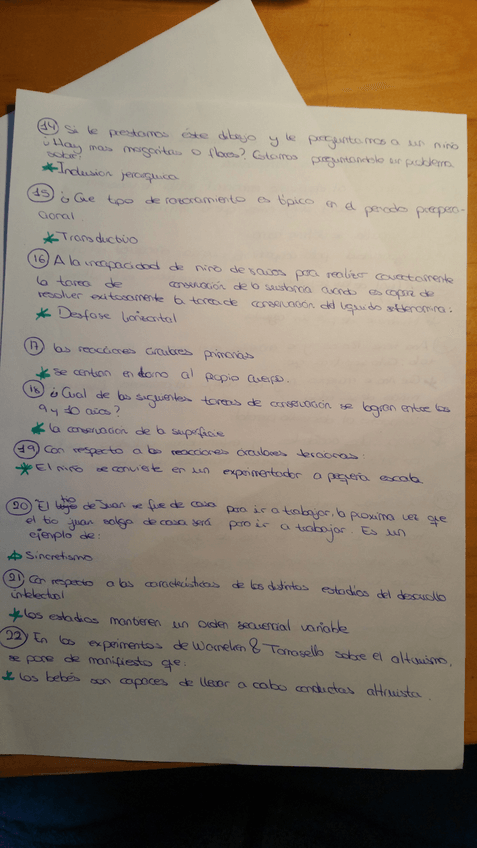 14) Si le prestamos éste dibujo y le preguntamos a un niño
¿Hay mas margaritas o flores? Estamos preguntandole un problema
sobre:
* Inclusion jerarquica
15) ¿Que tipo de razonamiento es típico en el periodo preopera-
cional
* Transductivo
16) A la incapacidad de niño de 8 años para realizar correctamente
la tarea de conservación de la sustancia cuando es capaz de
resolver exitosamente la tarea de conservación del liquido se denomina:
* Desfase horizontal
17) las reacciones circulares primarias
* se centran en torno al propio cuerpo.
18) ¿Cual de las siguientes tareas de conservación se logran entre los
9 y 10 años?
* la conservación de la superficie
19) Con respecto a las reacciones circulares terciarias:
* El niño se convierte en un experimentador a pequeña escala
20) El tio de Juan se fue de casa para ir a trabajar, la proxima vez que
el tio juan salga de casa será para ir a trabajar. Es un
ejemplo de:
* Sincretismo
21) Con respecto a las características de los distintos estadios del desarrollo
intelectual
* Los estadios mantienen un orden secuencial variable
22) En los experimentos de Warneken & Tomasello sobre el altruismo,
se pone de manifiesto que:
* Los bebés son capaces de llevar a cabo conductas altruista.